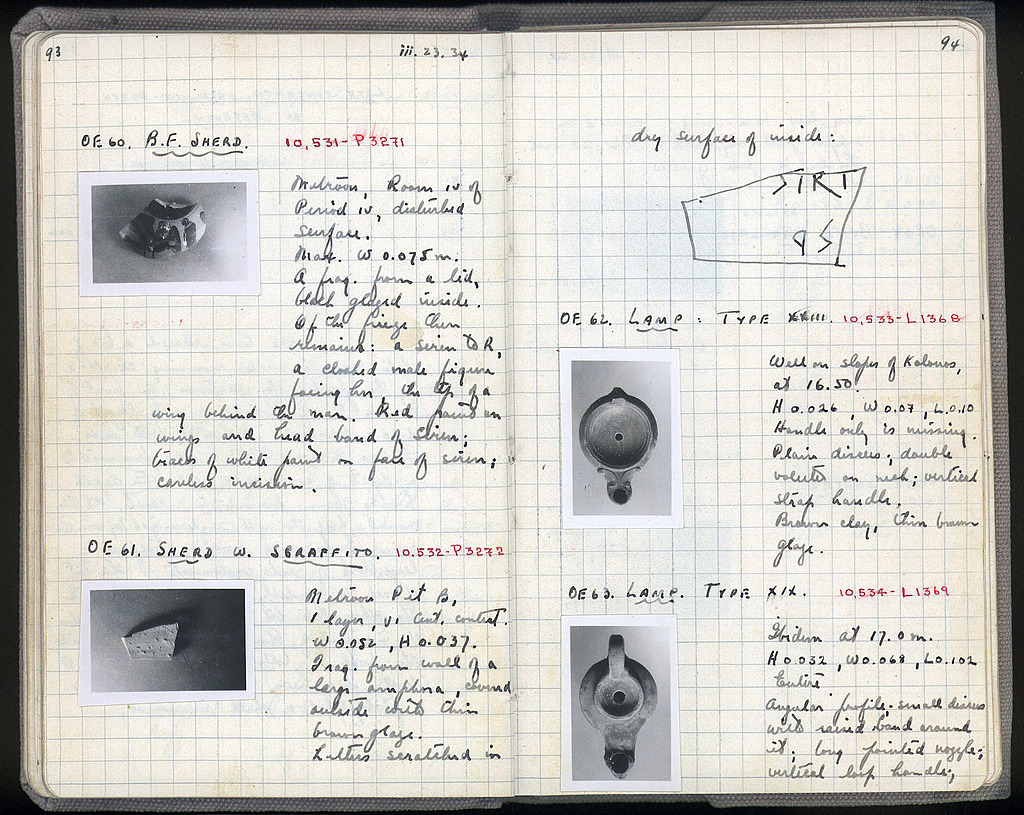 93
iii. 23. 34
OE 60. B.F. SHERD. 10,531-P3271
Metroon, Room iv of
Period iv, disturbed
surface.
Max. W 0.075 m.
A frag. from a lid,
black glazed inside.
Of the frieze there
remains: a siren to R,
a cloaked male figure
facing her, the tip of a
wing behind the man. Red paint on
wings and head band of siren;
traces of white paint on face of siren;
careless incision.
OE 61. SHERD W. SGRAFFITO. 10,532-P3272
Metroon Pit B,
1 layer, vi Cent. context.
W 0.052, H 0.037.
Frag. from wall of a
large amphora, covered
outside with thin
brown glaze.
Letters scratched in
94
dry surface of inside:
OE 62. LAMP: TYPE 10,533-L1368
Well on slopes of Kolonos,
at 16.50.
H 0.026, W 0.07, L 0.10
Handle only is missing.
Plain discus; double
volutes on neck; vertical
strap handle.
Brown clay, thin brown
glaze.
OE 63. LAMP. TYPE XIX. 10,534-L1369
Ibidem at 17.0 m.
H 0.032, W 0.068, L 0.102
Entire
Angular profile; small discus
with raised band around
it; long pointed nozzle;
vertical loop handle;